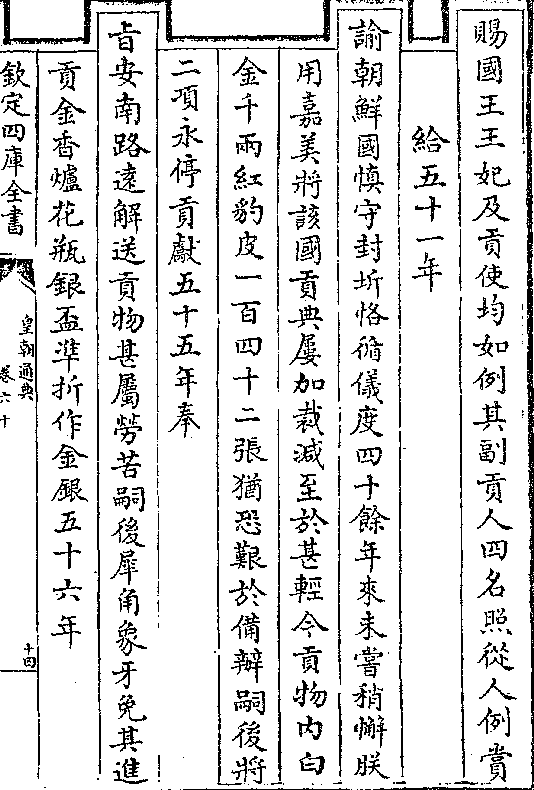 賜國王王妃及貢使均如例其副貢人四名照從人例賞
給五十一年
諭朝鮮國慎守封圻恪循儀度四十餘年來未嘗稍懈朕
用嘉美將該國貢典屢加裁減至於甚輕今貢物内白
金千兩紅豹皮一百四十二張猶恐艱於備辦嗣後將
二項永停貢獻五十五年奉
旨安南路遠解送貢物甚屬勞苦嗣後犀角象牙免其進
貢金香爐花瓶銀盃準折作金銀五十六年
欽定四庫全書
皇朝通典
卷六十
十四